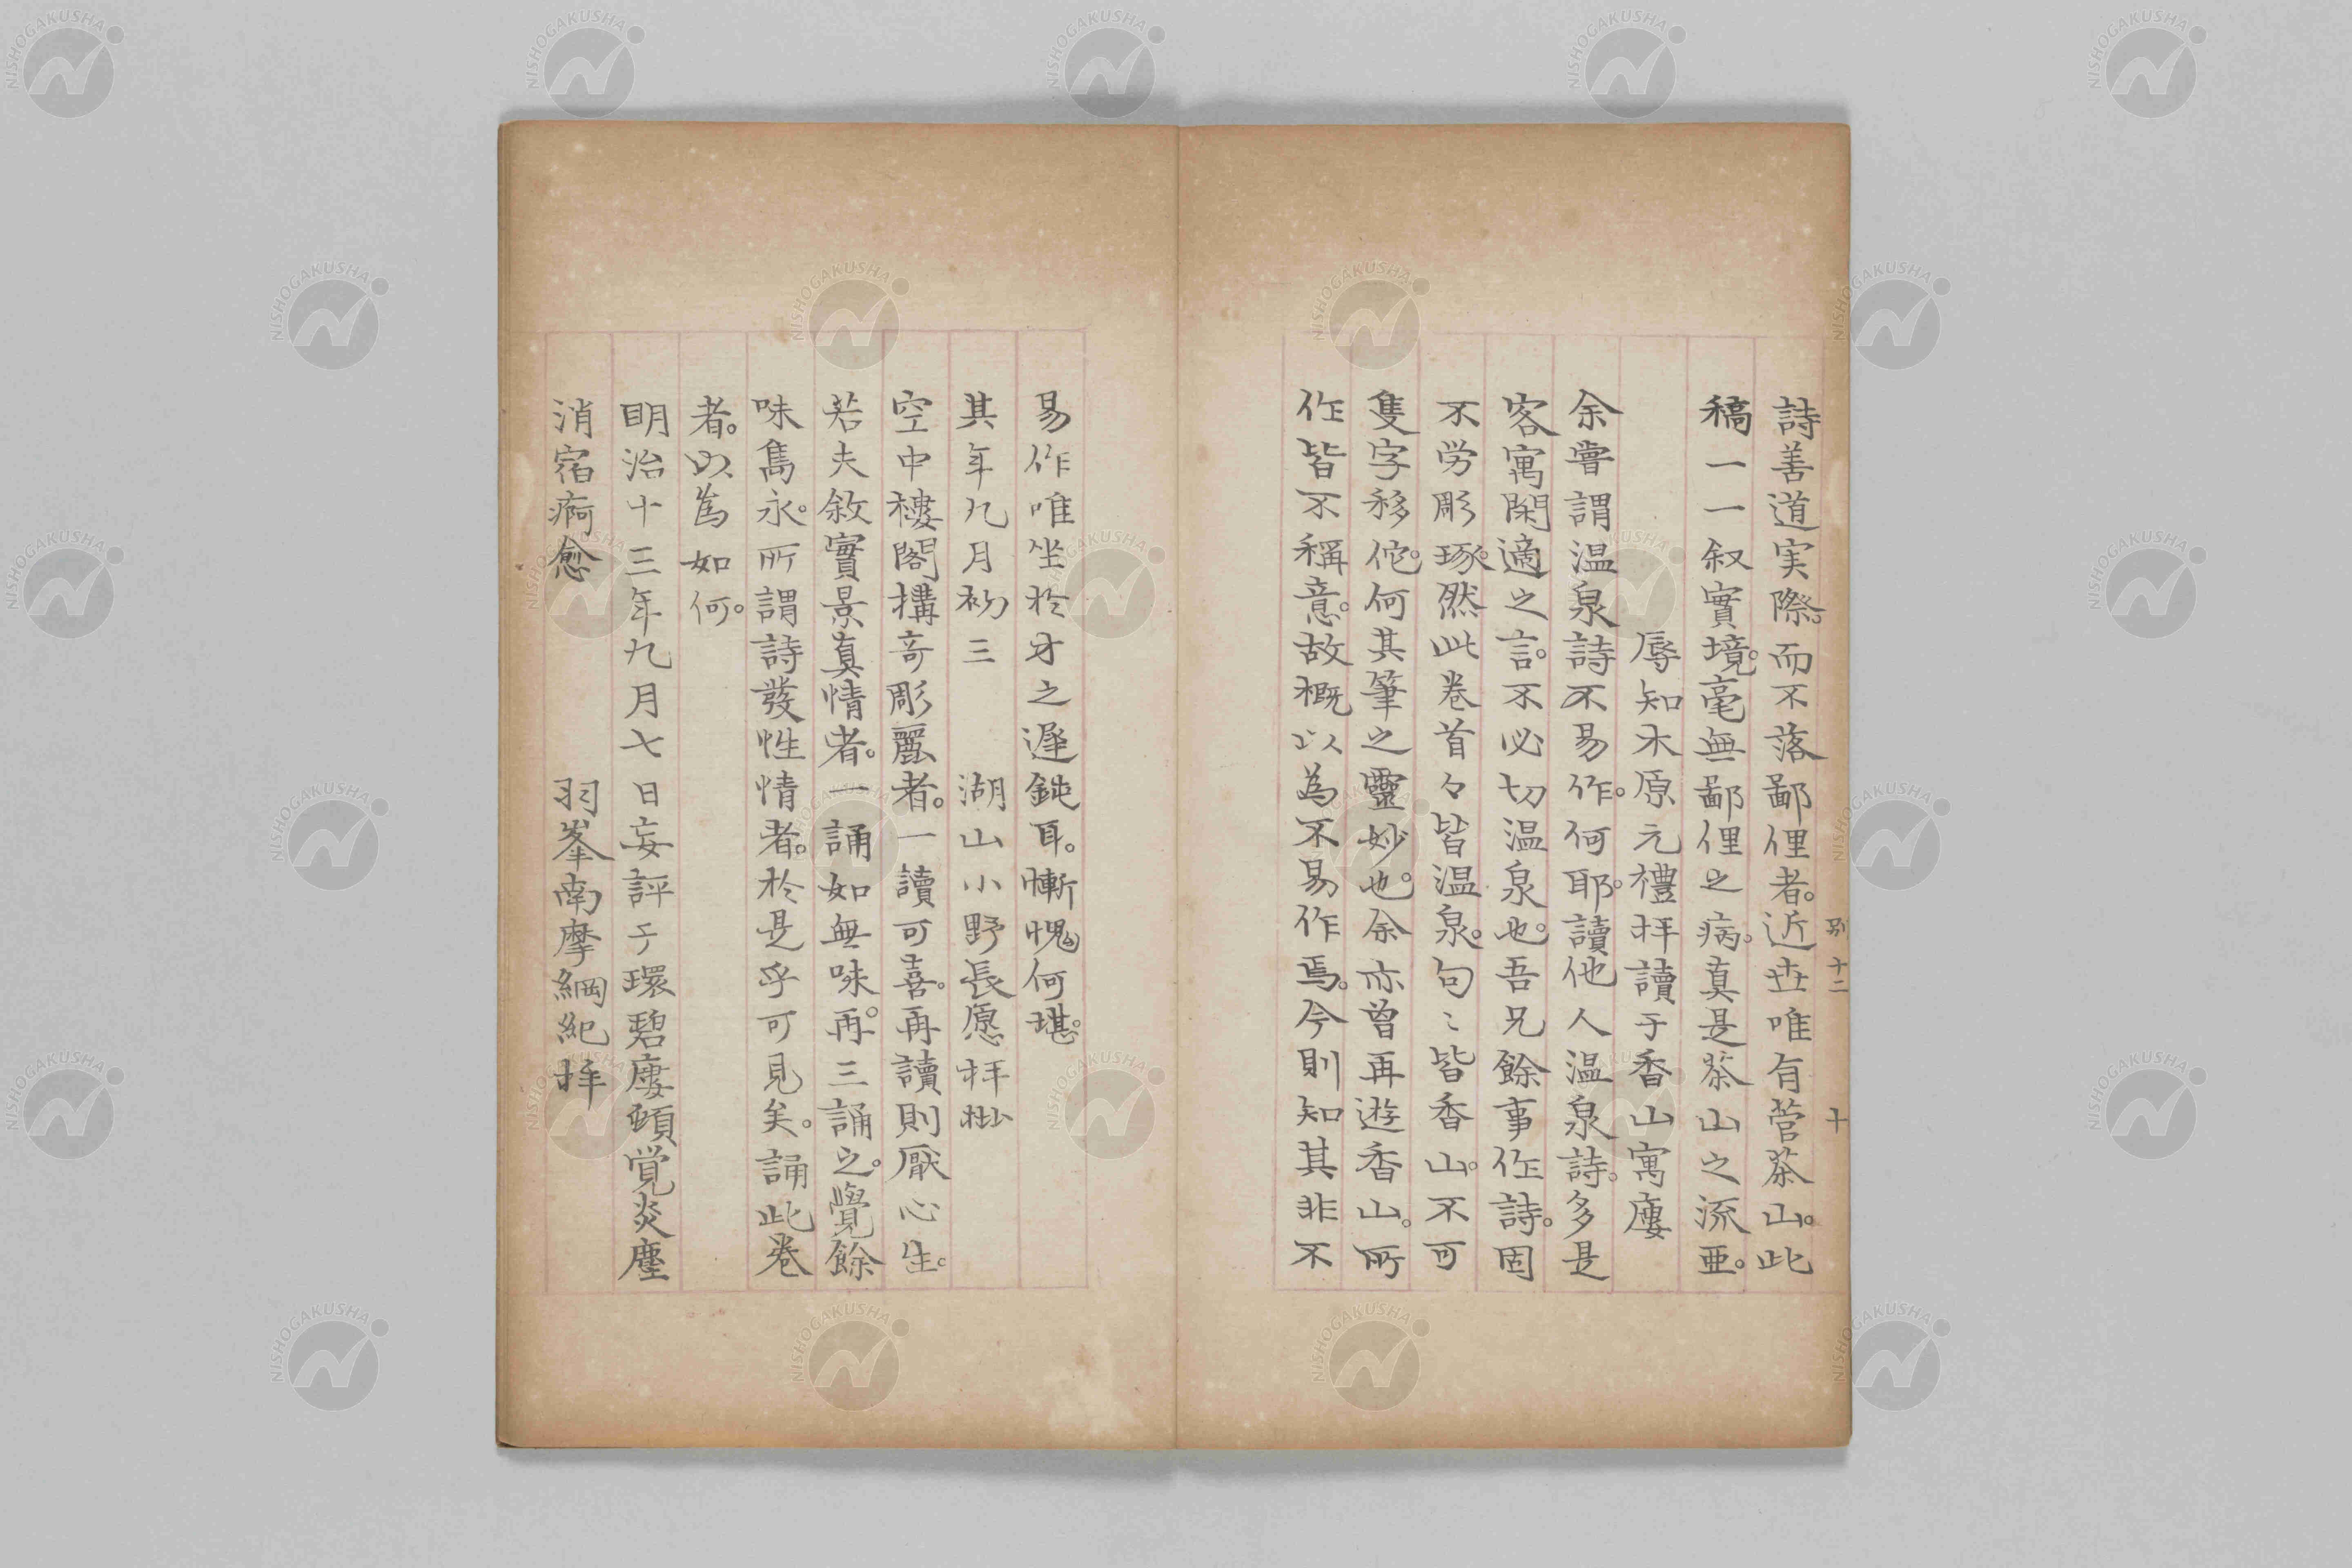 詩善道実際。而不落鄙俚者。近世唯有菅茶山。此
稿一一叙實境。毫無鄙俚之病。真是茶山之流亜。
辱知木原元禮拝讀于香山寓廔
余嘗謂温泉詩不易作。何耶。讀他人温泉詩。多是
客寓閑適之言。不必切温泉也。吾兄餘事作詩。固
不労彫琢。然此巻首々皆温泉。句〻皆香山。不可
隻字移佗。何其筆之靈妙也。余亦曽再遊香山。所
作皆不稱意。故概以為不易作焉。今則知其非不
易作唯坐於才之遅鈍耳。慚愧何堪。
其年九月初三　湖山小野長愿拝批
空中樓閣搆竒彫麗者。一讀可喜。再讀則厭心生。
若夫敘實景真情者。一誦如無味。再三誦之。覺餘
味雋永。所謂詩發性情者。於是乎可見矣。誦此巻
者。以爲如何。
明治十三年九月七日妄評于環碧廔頓覚炎塵
消宿痾愈　羽峯南摩綱紀拝
別十二　十